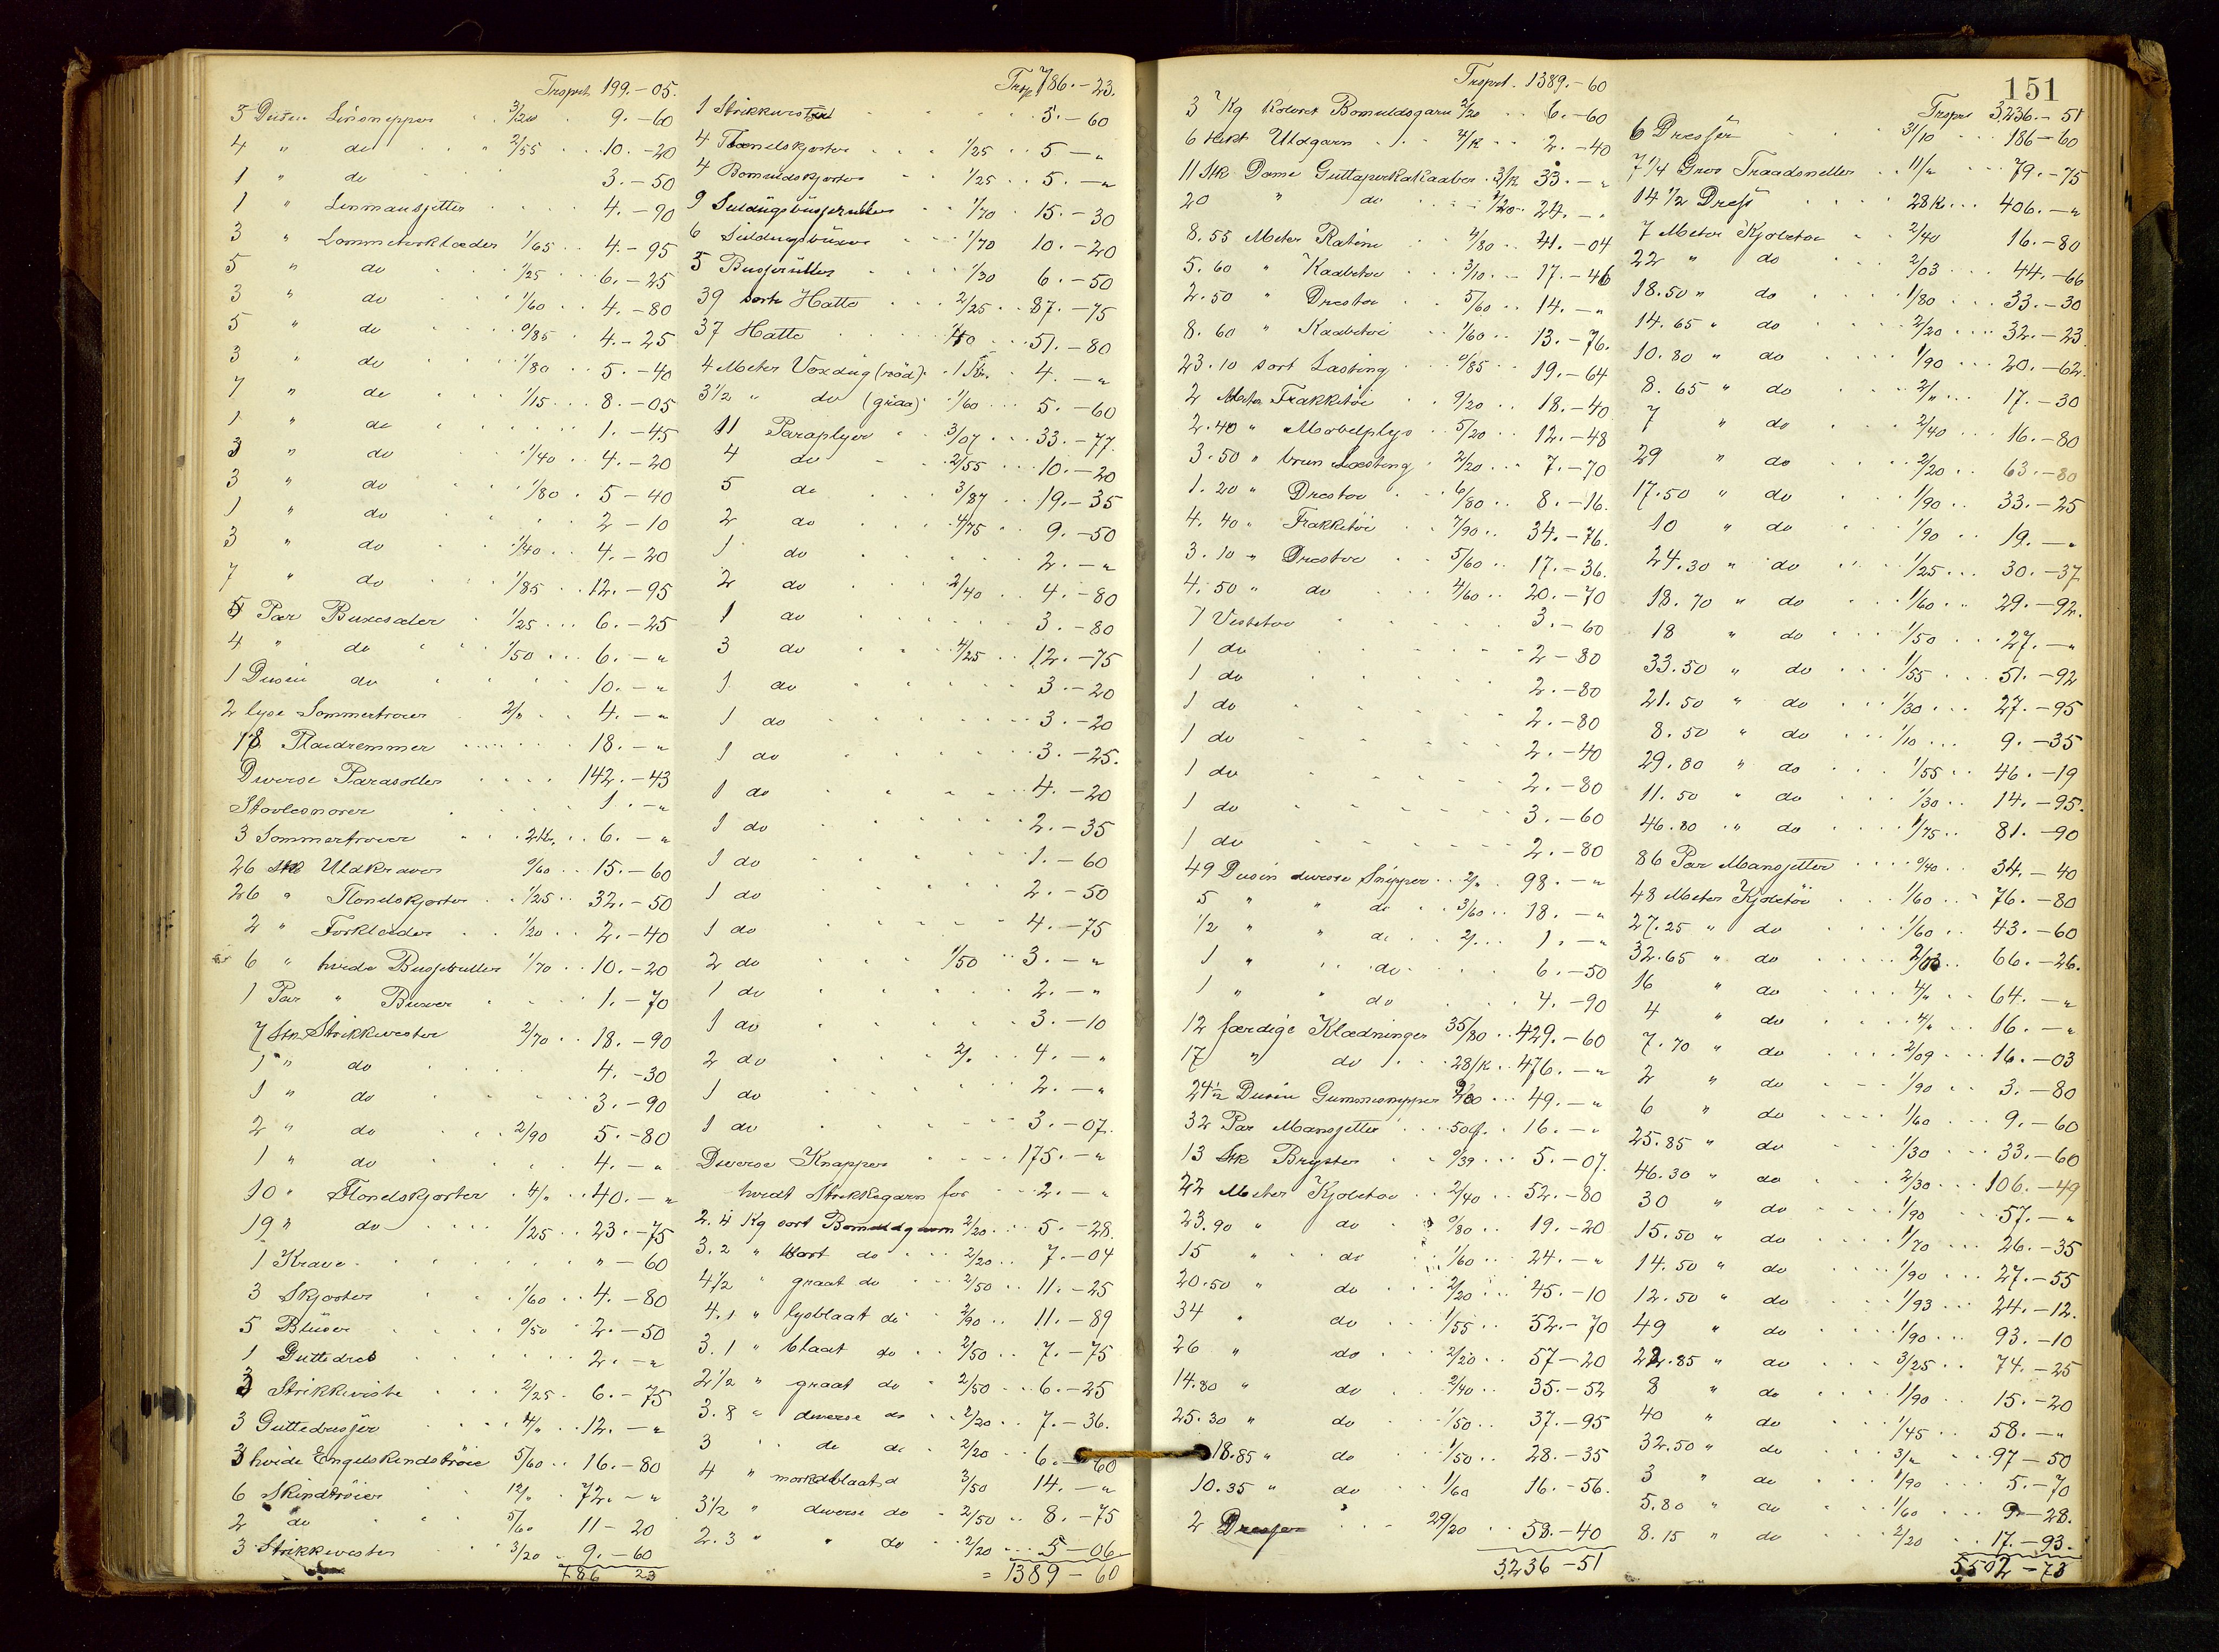 Trsprt. 199.-05.
3 Dusin Linsnipper 3/20 9.-60
4 " do 2/55 10.-20
1 " do 3.-50
1 " Linmansjetter 4.-90
3 " Lommetørklæder 1/65 4.-95
5 " do 1/25 6.-25
3 " do 1/60 4.-80
5 " do 0/85 4.-25
3 " do 1/80 5.-40
7 " do 1/15 8.-05
1 " do 1.-45
3 " do 1/40 4.-20
3 " do 1/80 5-40
1 " do 2-10
3 " do 1/40 4.-20
7 " do 1/85 12.-95
5 Par Buxesæler 1/25 6.-25
4 " do 1/50 6.-"
1 Dusin do 10.-"
2 lyse Sommertrøier 2/" 4.-"
18 Plaidremmer 18.-"
Diverse Parasoller 142.-43
Støvlesnører 1.-"
3 Sommertrøier 2K. 6.-"
26 Stk Uldkraver 0/60 15.-60
26 " Flonelskjorter 1/25 32.-50
2 " Forklæder 1/20 2.-40
6 " hvide Busseruller 1/70 10.-20
1 Par " Buxer 1.-70
7 Stk Strikkevester 2/70 18.-90
1 " do 4.-30
1 " do 3.-90
2 " do 2/90 5.-80
1 " do 4.-"
10 " Flonelskjorter 4/" 40.-"
19 " do 1/25 23.-75
1 Krave "-60
3 Skjorter 1/60 4.-80
5 Bluser 0/50 2.-50
1 Guttedres 2.-"
3 Strikkeveste 2/25 6.-75
3 Guttedresser 4/" 12.-"
3 hvide Engelskindstrøie 5/60 16.-80
6 Skindtrøier 12/" 72.-"
2 do 5/60 11-20
3 Strikkevester 3/20 9.-60
786 23
Trsp 786.-23.
1 Strikkevest 5.-60
4 Flonelskjorter 1/25 5-"
4 Bomuldskjorter 1/25 5.-"
9 Seildugsbusseruller 1/70 15.-30
6 Seildugsbuxer 1/70 10.-20
5 Busseruller 1/30 6.-50
39 sorte Hatte 2/25 87.-75
37 Hatte 1/40 51.-80
4 Meter Voxdug (rød) 1 Kr. 4.-"
3 1/2 " do (graa) 1/60 5.-60
11 Paraplyer 3/07 33.-77
4 do 2/55 10.-20
5 do 3/87 19.-35
2 do 4/75 9.-50
1 do 2.-"
2 do 2/40 4.-80
1 do 3.-80
3 do 4/25 12.-75
1 do 3.-20
1 do 3.-20
1 do 3.-25.
1 do 4.-20
1 do 2.-35
1 do 1.-60
1 do 2.-50
1 do 4.-75
2 do 1/50 3.-"
1 do 2.-"
1 do 3.-10
2 do 2/" 4.-"
1 do 2.-"
1 do 3.-07.
Diverse Knapper 175.-"
hvidt Strikkegarn for 2.-"
2.4 Kg sort Bomuldgarn 2/20 5.-28.
3.2 " do 2/20 7.-04
4 1/2 " graat do 2/50 11.-25
4.1 " lysblaat do 2/90 11.-89
3.1 " blaat do 2/50 7.-75
2 1/2 " graat do 2/50 6.-25
3.8 " diverse do 2/20 7.-36.
3 " do do 2/20 6.-60
4 " mørkblaat d 3/50 14.-"
3 1/2 " diverse do 2/50 8.-75
2.3 " " do 2/20 5-06
= 1389-60
Trsprt. 1389.-60
3 Kg koloret Bomuldsgarn 2/20 6.-60
6 Hekt Uldgarn 4/K 2.-40
11 Stk Dame Guttaperkakaaber 3/K 33.-"
20 " do 1/20 24.-"
8.55 Meter Ratine 4/80 41.-04
5.60 " Kaabetøi 3/10 17.-46
2.50 " Drestøi 5/60 14.-"
8.60 " Kaabetøi 1/60 13.-76.
23.10 sort Lasting 0/85 19.-64
2 Meter Frakketøi 9/20 18.-40
2.40 " Møbelplys 5/20 12.-48
3.50 " brun Lasting 2/20 7.-70
1.20 " Drestøi 6/80 8.-16.
4.40 " Frakketøi 7/90 34.-76.
3.10 " Drestøi 5/60 17.-36.
4.50 " do 4/60 20.-70
1 Vestetøi 3.-60
1 do 2-80
1 do 2.-80
1 do 2.-80
1 do 2.-40
1 do 2.-80
1 do 3.-60
1 do 2.-80
49 Dusin diverse Snipper 2/" 98.-"
5 " " do 3/60 18.-"
1/2 " " do 2/" 1.-"
1 " do 6.-50
1 " " do 4.-90
12 færdige Klædninger 35/80 429.-60
17 " do 28/K 476.-"
24 1/2 Dusin Gummisnipper 2/00 49.-"
32 Par Mansjetter 50ø. 16.-"
13 Stk Bryster 0/39 5.-07.
22 Meter Kjoletøi 2/40 52.-80
23.90 " do 0/80 19.-20
15 " do 1/60 24.-"
20.50 " do 2/20 45.-10
34 " do 1/55 52.-70
26 " do 2/20 57-20
14.80 " do 2/40 35.-52
25.30 " do 1/50 37.-95
18.85 " do 1/50 28.-35
10.35 " do 1/60 16.-56.
2 Dresser 29/20 58.-40
3236-51
151
Trsprt 3236.-51
6 Dresser 31/10 186-60
7 1/4 Gros Traadsneller 11/" 79.-75
14 1/2 Dress 28K 406.-"
7 Meter Kjoletøi 2/40 16.-80
22 " do 2/03 44.-66
18.50 " do 1/80 33.-30
14.65 " do 2/20 32.-23
10.80 " do 1/90 20.-62.
8.65 " do 2/" 17.-30
7 " do 2/40 16.-80
29 " do 2/20 63.-80
17.50 " do 1/90 33.-25
10 " do 1/90 19.-"
24.30 " do 1/25 30.-37
18.70 " do 1/60 29.-92.
18 " do 1/50 27.-"
33.50 " do 1/55 51.-92
21.50 " do 1/30 27.-95
8.50 " do 1/10 9.-35
29.80 " do 1/55 46.-19
11.50 " do 1/30 14.-95.
46.80 " do 1/75 81.-90
86 Par Mansjetter 0/40 34.-40
48 Meter Kjoletøi 1/60 76.-80
27.25 " do 1/60 43.-60
32.65 " do 2/03 66.-26.
16 " do 4/" 64.-"
4 " do 4/" 16.-"
7.70 " do 2/09 16.-03
2 " do 1/90 3.-80
6 " do 1/60 9.-60
25.85 " do 1/30 33.-60
46.30 " do 2/30 106.-49
30 " do 1/90 57.-"
15.50 " do 1/70 26.-35
14.50 " do 1/90 27.-55
12.50 " do 1/93 24.-12.
49 " do 1/90 93.-10
22.85 " do 3/25 74.-25
8 " do 1/90 15.-20
40 " do 1/45 58.-"
32.50 " do 3/" 97-50
3 " do 1/90 5.-70
5.80 " do 1/60 9-28.
8.15 " do 2/20 17.-93.
5502-73